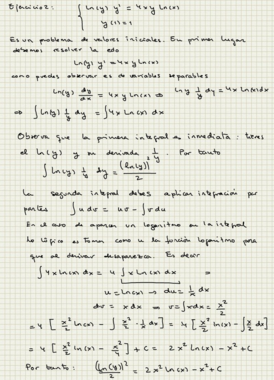 Ejercicio 2: { ln(y) y' = 4xy ln(x)
y(1) = 1
Es un problema de valores iniciales. En primer lugar
debemos resolver la edo
ln(y) y' = 4xy ln(x)
como puedes observar es de variables separables
ln(y) dy/dx = 4xy ln(x) ⇒ ln y 1/y dy = 4x ln(x)dx
⇒ ∫ ln(y) 1/y dy = ∫ 4x ln(x) dx
Observa que la primera integral es inmediata: tienes
el ln(y) y su derivada 1/y. Por tanto
∫ ln(y) 1/y dy = (ln(y))²/2
La segunda integral debes aplicar integración por
partes ∫ u dv = uv - ∫ v du
En el caso de aparecer un logaritmo en la integral
lo lógico es tomar como u la función logaritmo para
que al derivar desaparezca. Es decir
∫ 4x ln(x) dx = 4 ∫ x ln(x) dx =
u = ln(x) → du = 1/x dx
dv = x dx ⇒ v = ∫ x dx = x²/2
= 4 [ x²/2 ln(x) - ∫ x²/2 · 1/x dx ] = 4 [ x²/2 ln(x) - ∫ x/2 dx ]
= 4 [ x²/2 ln(x) - x²/4 ] + C = 2x² ln(x) - x² + C
Por tanto: (ln(y))²/2 = 2x² ln(x) - x² + C